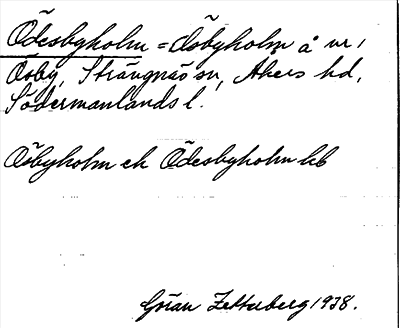 Ödesbyholm = Ösbyholm å nr 1
Ösby, Strängnäs sn, Åkers hd,
Södermanlands l.
Ösbyholm ek Ödesbyholm hb
Göran Zetterberg 1938.